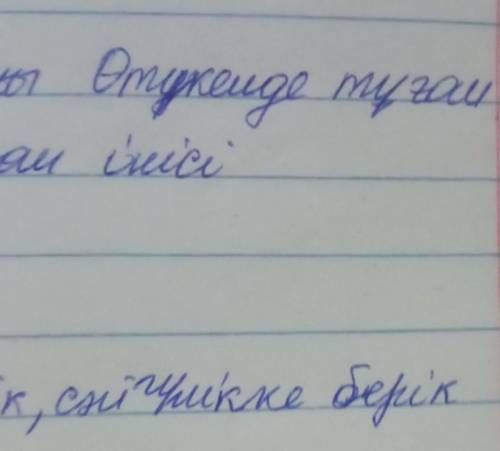 ны Өтукенде туған
ан інісі
к, серікке берік